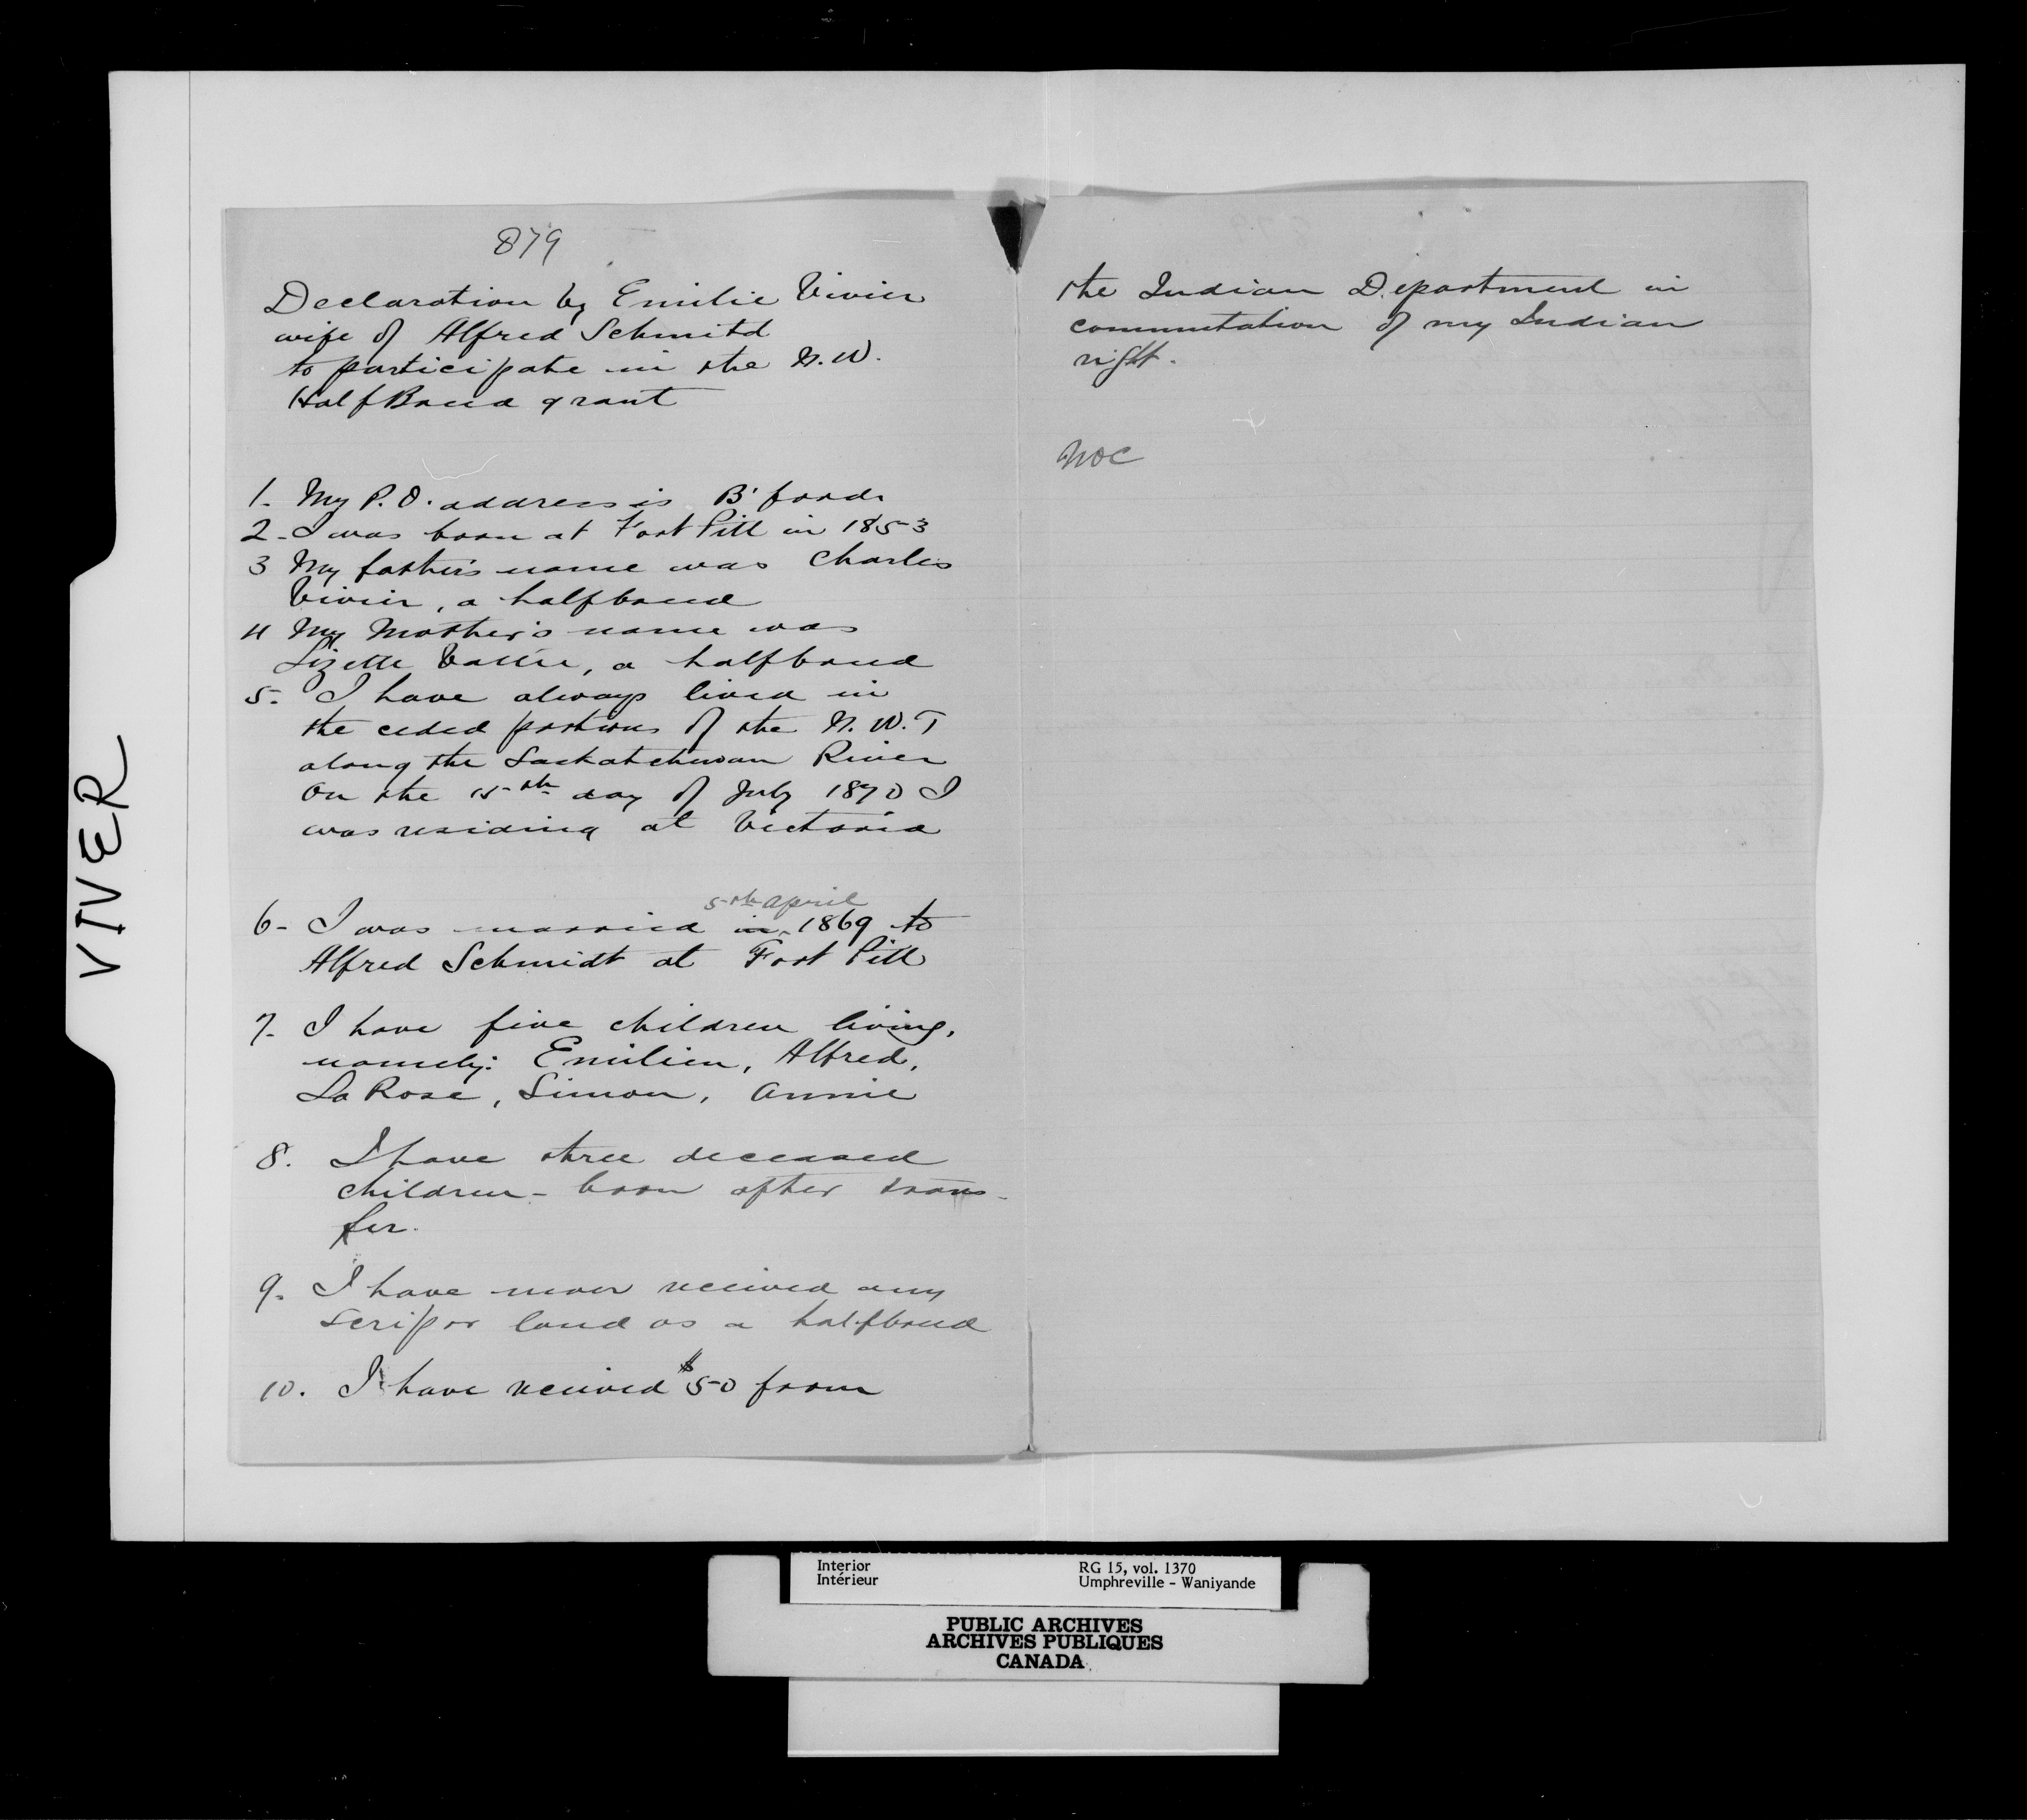 VIVER
879
Declaration by Emilie Vivier
wife of Alfred Schmitd
to participate in the N.W.
Half Breed grant
1. My P.O. address is B'ford
2 - I was born at Fort Pitt in 1853
3 My father's name was Charles
Vivier, a halfbreed
4 My Mother's name was
Lizette a halfbreed
5. I have always lived in
the ceded portions of the N.W.T
along the Saskatchewan River
On the 15th day of July 1870 I
was residing at Victoria
5th April
6 - I was married in 1869 to
Alfred Schmidt at Fort Pitt
7. I have five children living,
namely: Emilien, Alfred,
La Rose, Simon, Annie
8. I have three deceased
children - born after trans-
fer.
9. I have never received any
scrip or land as a halfbreed
10. I have received $50 from
the Indian Department in
commutation of my Indian
right.
NOC
Interior
Intérieur
RG 15, vol. 1370
Umphreville - Waniyande
PUBLIC ARCHIVES
ARCHIVES PUBLIQUES
CANADA